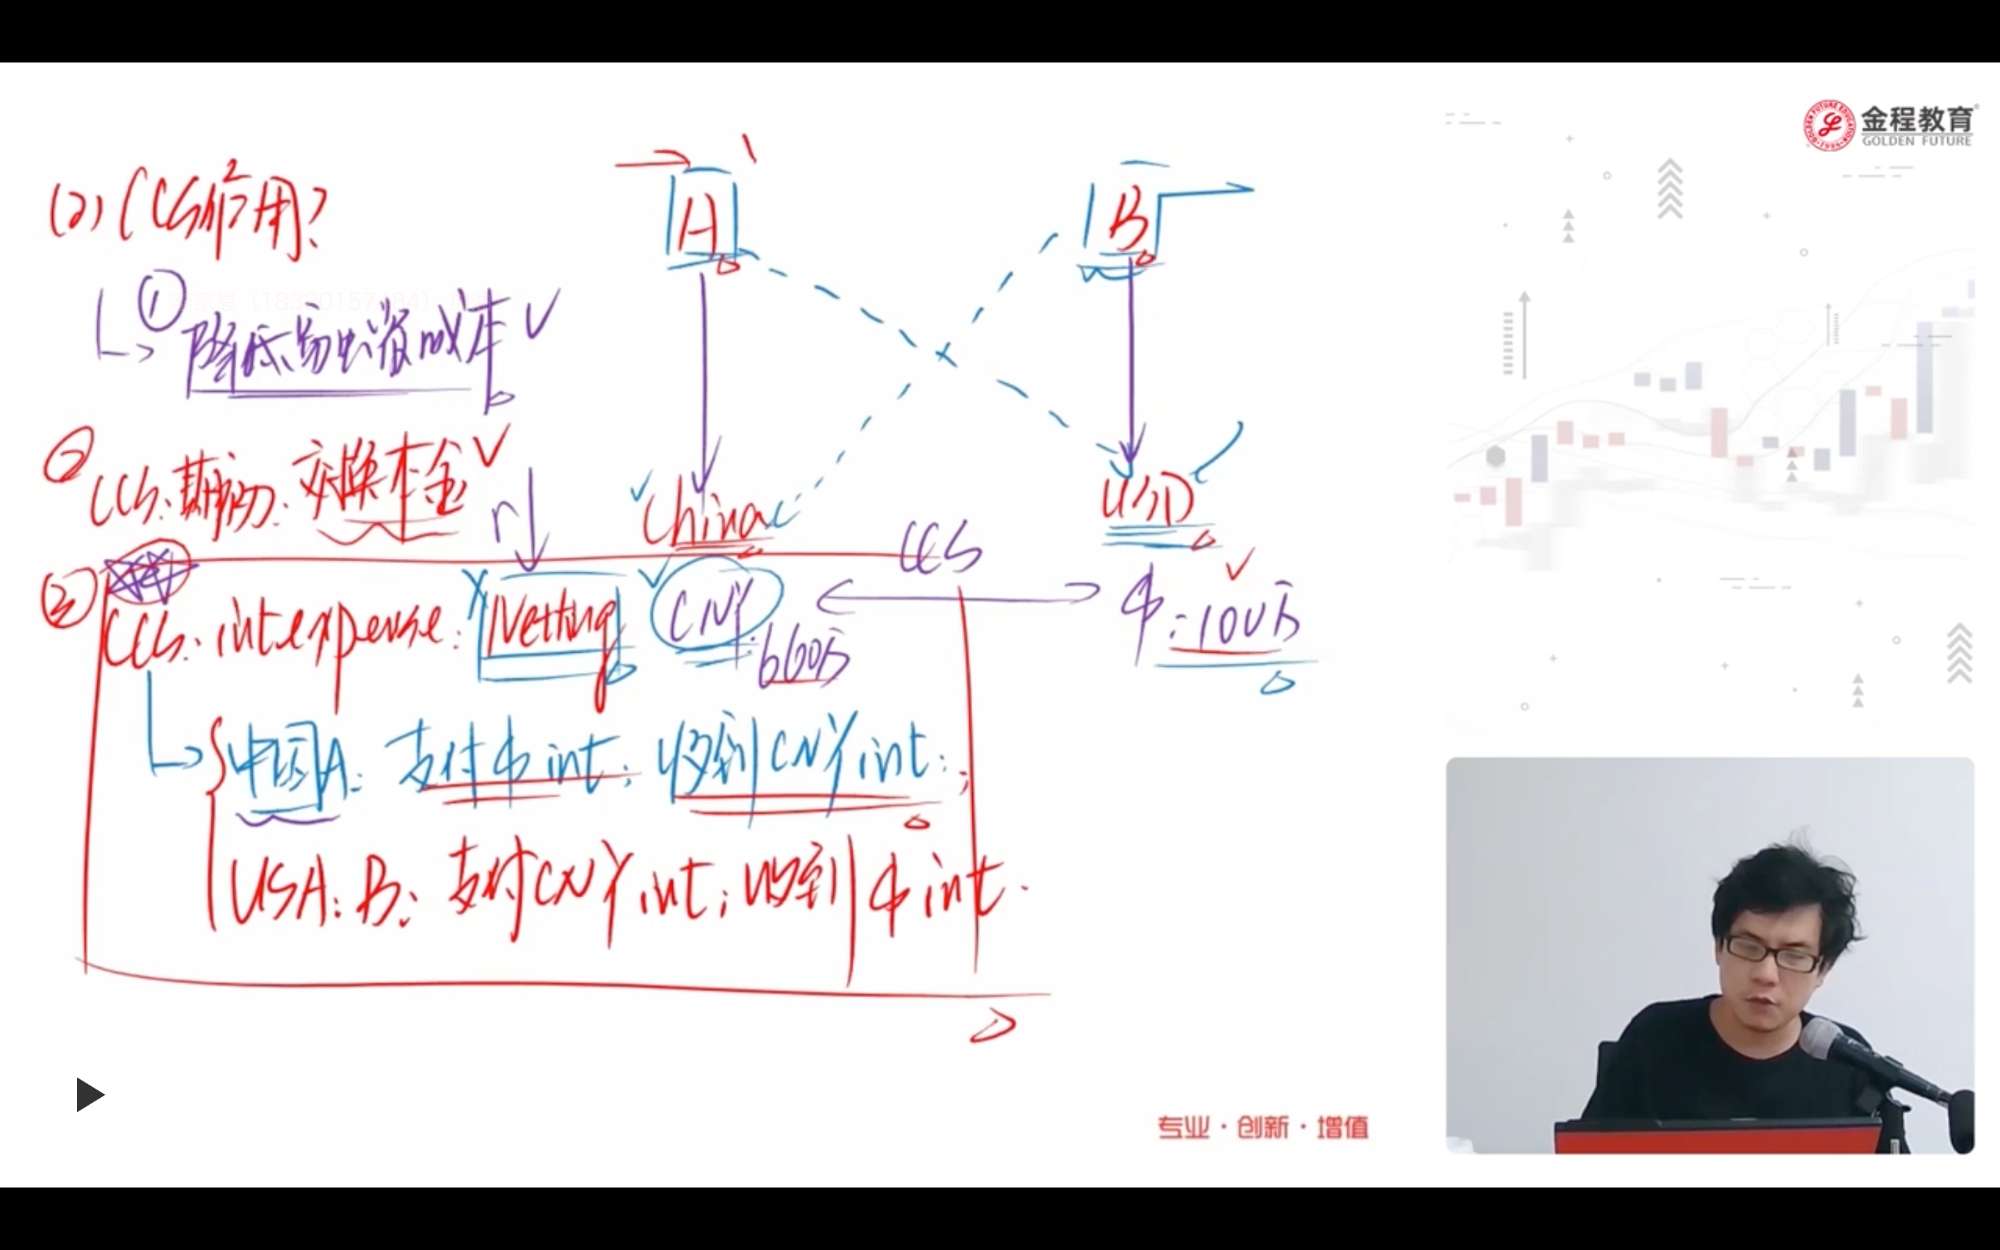 金程教育
GOLDEN FUTURE
(2) CCS作用?
A
B
① 降低融资成本 ✓
② CCS: 期初: 交换本金 ✓
r
China
USD
CCS
③ CCS: int expense: Netting
CNY: 660万
$: 100万
中国A: 支付$ int; 收到CNY int;
USA: B: 支付CNY int; 收到$ int.
专业·创新·增值